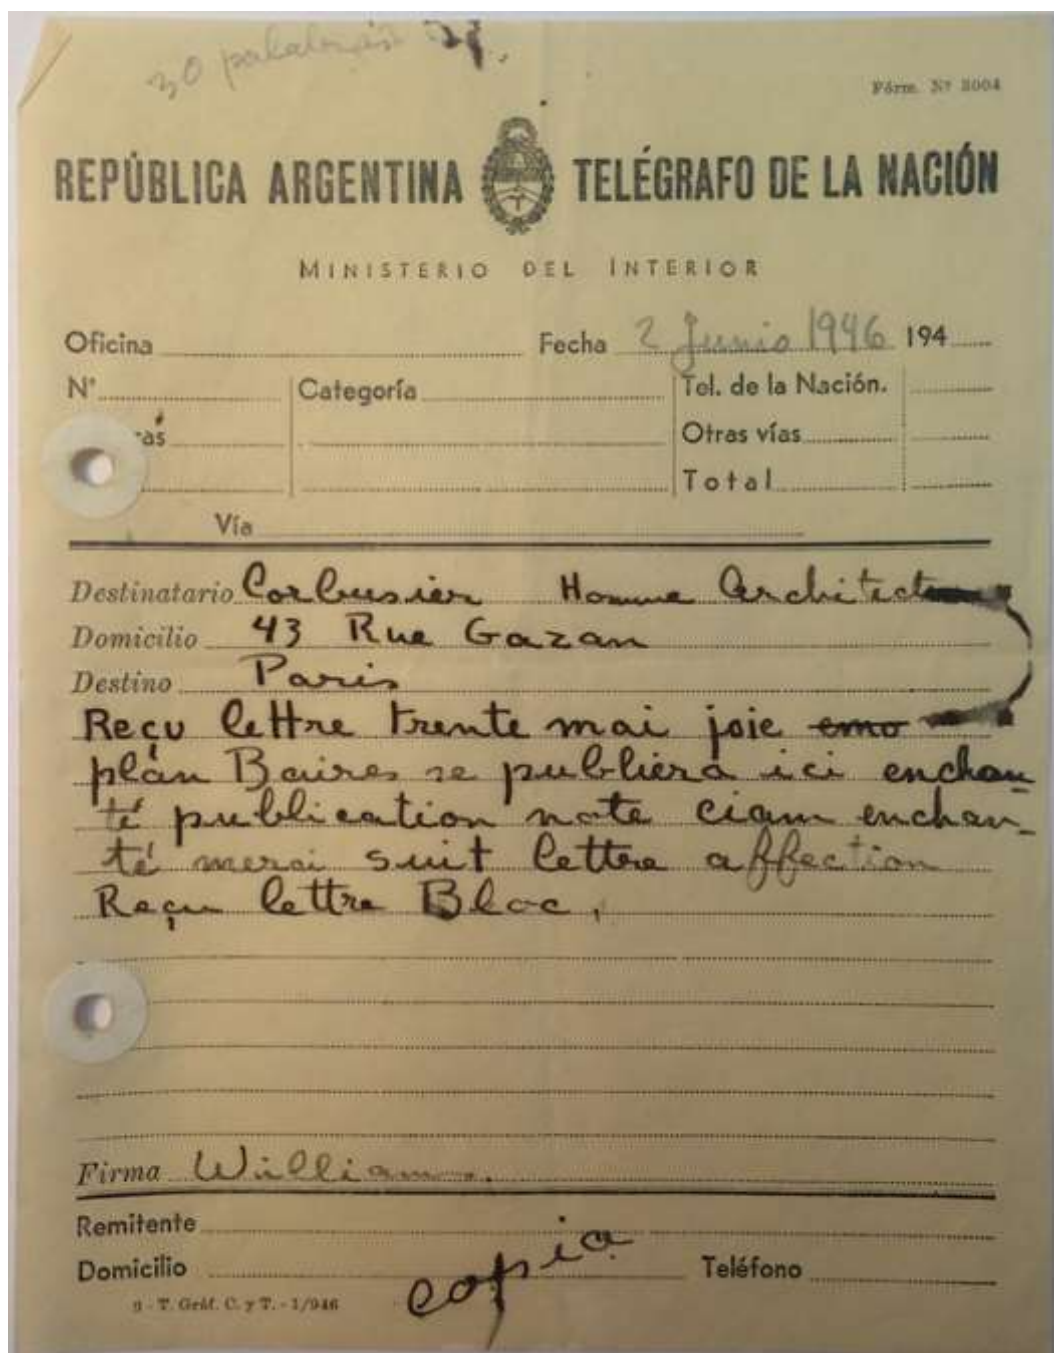 30 palabras
Fórm. Nº 3004
REPÚBLICA ARGENTINA TELÉGRAFO DE LA NACIÓN
MINISTERIO DEL INTERIOR
Oficina Fecha 2 Junio 1946 194
Nº Categoría Tel. de la Nación.
ras Otras vías
Total
Vía
Destinatario Corbusier Homme Architect
Domicilio 43 Rue Gazan
Destino Paris
Reçu lettre trente mai joie emo
plan Baires se publiera ici enchan-
té publication note ciam enchan-
té merci suit lettre affection
Reçu lettre Bloc,
Firma William.
Remitente
Domicilio copia Teléfono
9 - T. Gráf. C. y T. - 1/946